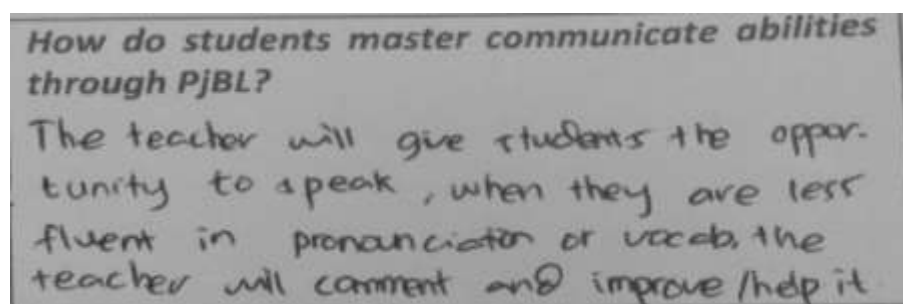 How do students master communicate abilities
through PjBL?
The teacher will give students the oppor-
tunity to speak, when they are less
fluent in pronounciation or vocab. the
teacher will comment and improve/help it